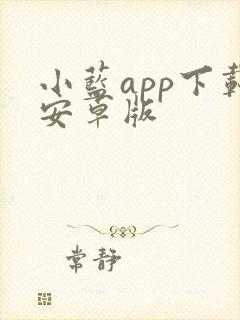 小藍app下載
安卓版
常靜